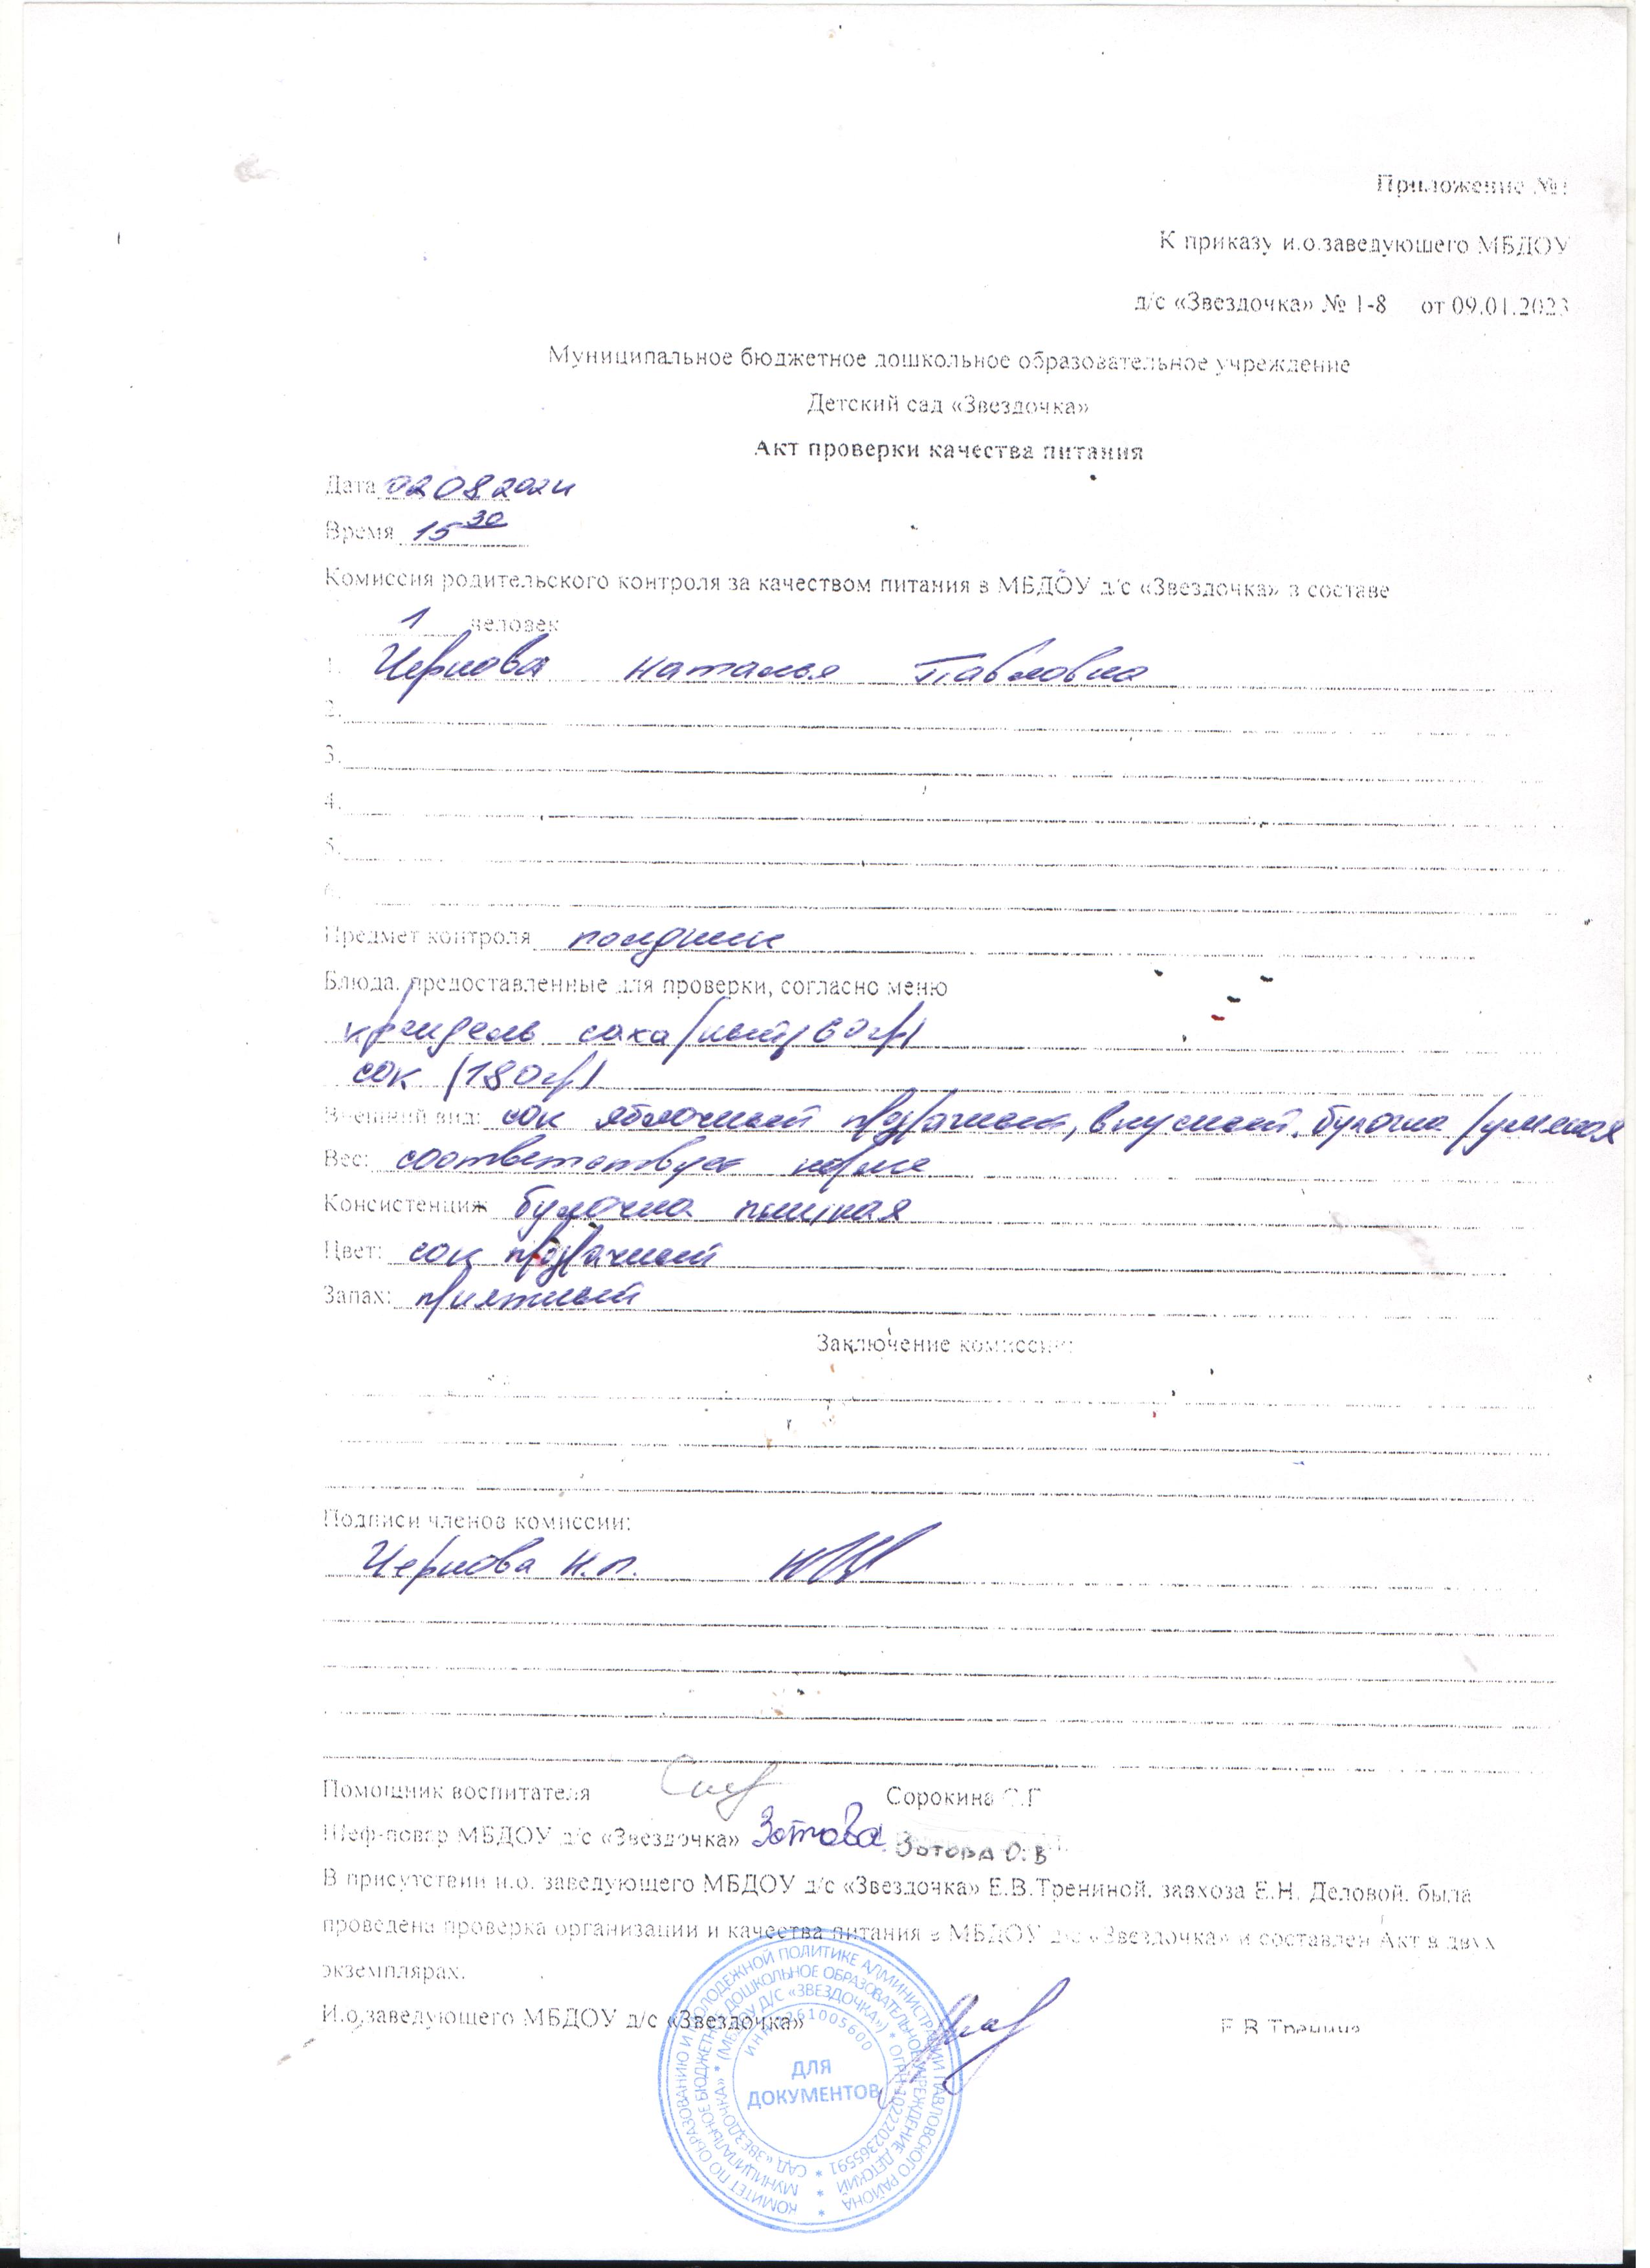 Приложение №1
К приказу и.о.заведующего МБДОУ
д/с «Звездочка» № 1-8 от 09.01.2023
Муниципальное бюджетное дошкольное образовательное учреждение
Детский сад «Звездочка»
Акт проверки качества питания
Дата 02 08 2024
Время 15 30
Комиссия родительского контроля за качеством питания в МБДОУ д/с «Звездочка» в составе
1 человек
1. Чернова Наталья Павловна
2.
3.
4.
5.
6.
Предмет контроля полдник
Блюда, предоставленные для проверки, согласно меню
крендель сахарный (60гр)
сок (180гр)
Внешний вид: сок яблочный прозрачный, вкусный, булочка румяная
Вес: соответствует норме
Консистенция: булочка пышная
Цвет: сок прозрачный
Запах: приятный
Заключение комиссии:
Подписи членов комиссии:
Чернова Н.П.
Помощник воспитателя Сорокина С.Г
Шеф-повар МБДОУ д/с «Звездочка» Зотова Зотова О.В
В присутствии и.о. заведующего МБДОУ д/с «Звездочка» Е.В.Трениной, завхоза Е.Н. Деловой, была
проведена проверка организации и качества питания в МБДОУ д/с «Звездочка» и составлен Акт в двух
экземплярах.
И.о.заведующего МБДОУ д/с «Звездочка» Е.В.Тренина
КОМИТЕТ ПО ОБРАЗОВАНИЮ И МОЛОДЕЖНОЙ ПОЛИТИКЕ АДМИНИСТРАЦИИ ПАВЛОВСКОГО РАЙОНА *
МУНИЦИПАЛЬНОЕ БЮДЖЕТНОЕ ДОШКОЛЬНОЕ ОБРАЗОВАТЕЛЬНОЕ УЧРЕЖДЕНИЕ ДЕТСКИЙ *
САД «ЗВЕЗДОЧКА» * (МБДОУ Д/С «ЗВЕЗДОЧКА») * ОГРН 1022202365591 *
ИНН 2261005600
ДЛЯ
ДОКУМЕНТОВ